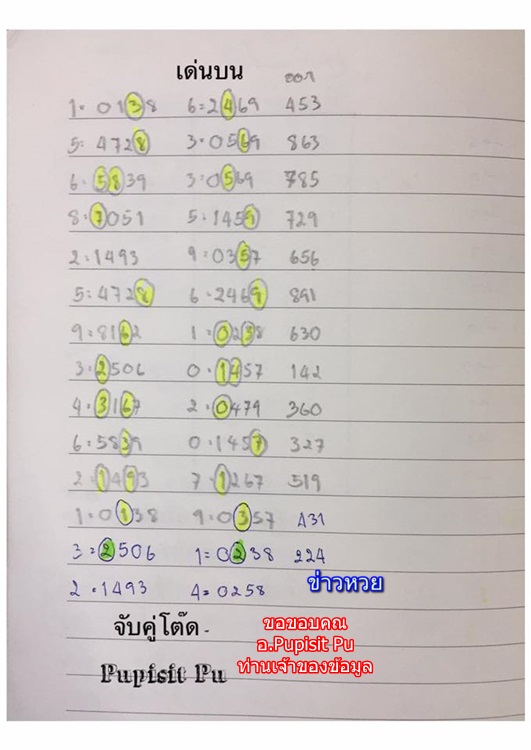 เด่นบน ออก
1= 0138 6=2469 453
5= 4728 3=0569 863
6=5839 3=0569 785
8=7051 5=1459 729
2=1493 9=0357 656
5=4728 6=2469 891
9=8162 1=0238 630
3=2506 0=1457 142
4=3167 2=0479 360
6=5839 0=1457 327
2=1493 7=1267 519
1=0138 9=0357 431
3=2506 1=0238 224
2=1493 4=0258 ข่าวหวย
จับคู่โต๊ด -
ขอขอบคุณ
อ.Pupisit Pu
ท่านเจ้าของข้อมูล
Pupisit Pu